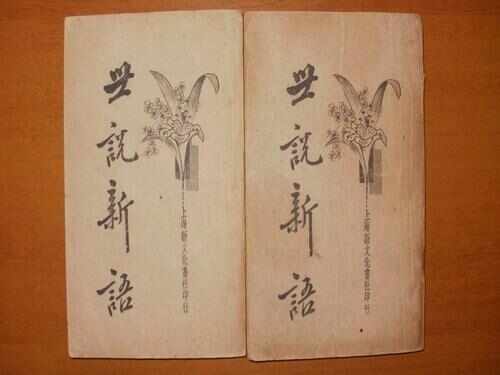 世說新語
上海新文化書社印行
世說新語
上海新文化書社印行